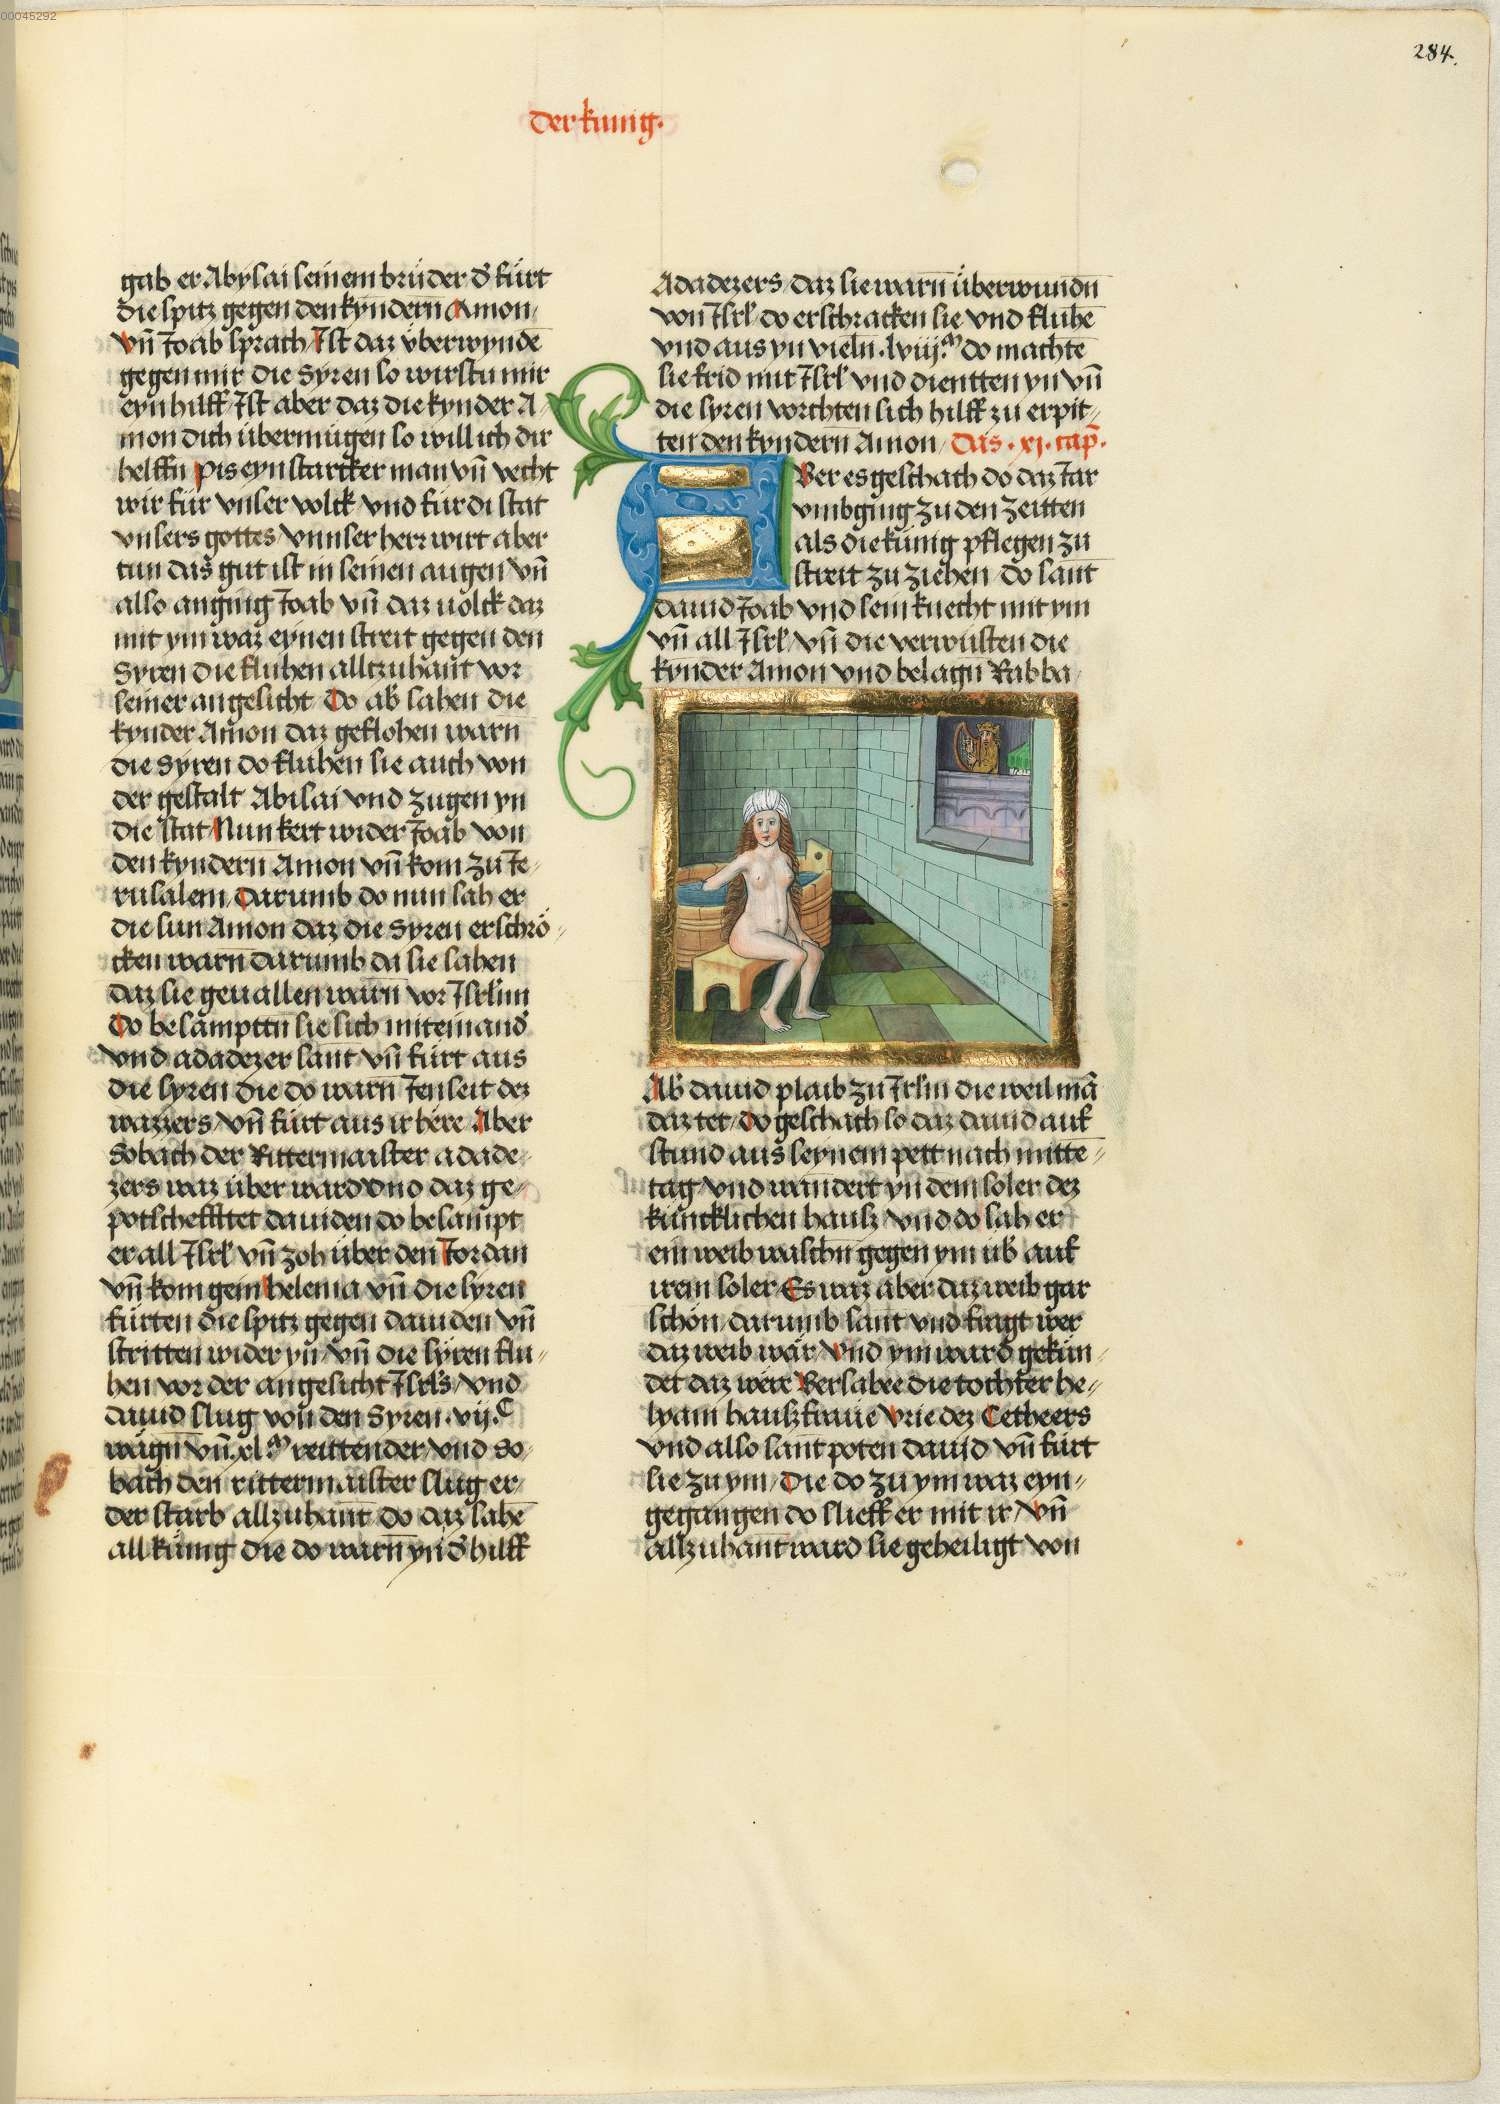 00045292
284.
der kunig.
gab er Abysai seinem brüder d̕ fürt
die spitz gegen den kyndern̄ Amon/
vn̄ Joab sprach Ist daz überwyndē
gegen mir die Syren so wirstu mir
eyn hilff/ Ist aber daz die kynder A/
mon dich übermügen so will ich dir
helffn̄ pis eyn starcker man vn̄ vecht
wir für vnser volck vnd für di stat
vnsers gottes/ vnnser herr wirt aber
tun das gut ist in seinen augen vn̄
also anging Joab vn̄ daz uolck daz
mit ym waz eynen streit gegen den
Syren die fluhen allczuhan̄t vor
seiner angesicht Do ab̕ sahen die
kynder Amon daz geflohen warn̄
die Syren do fluhen sie auch von
der gestalt Abisai vnd zugen yn
die stat Nun kert wider Joab von
den kyndern Amon vn̄ kom zu Je/
rusalem/ Darumb do nun sah er
die sun Amon daz die Syren erschrö/
cken warn̄ darumb da sie sahen
daz sie geuallen warn̄ vor Jsrl̕im
Do besampttn̄ sie sich miteinand̕
vnd adadezer san̄t vn̄ fürt aus
die syren die do warn̄ Jenseit dez
wazzers/ vn̄ fürt aus ir here Aber
Sobach der Rittermaister adade/
zers waz über ward vnd daz ge/
potscheffttet dauiden do besampt
er all Jsrl̕ vn̄ zoh über den Jordan
vn̄ kom gein helema vn̄ die syren
fürten die spitz gegen dauiden vn̄
stritten wider yn/ vn̄ die syren flu/
hen vor der angesicht Jsrl̕s/ vnd
dauid slug von den Syren .vij.C
wägn̄ vn̄ .xl.m reittender/ vnd So/
bach den rittermaister slug er/
der starb allzuhan̄t Do daz sahē
all künig die do warn̄ yn d̕ hilff
Adadezers/ daz sie warn̄ überwundn̄
von Jsrl̕ do erschracken sie vnd fluhē
vnd aus yn vieln̄ .lviij.m do machtē
sie frid mit Jsrl̕ vnd dientten yn vn̄
die syren vorchten sich hilff zu erpit/
ten den kyndern̄ Amon/ Das .xj. cap̄.
ABer es geschach do daz Jar
vmbging zu den zeitten
als die künig pflegen zu
streit zu ziehen/ do san̄t
dauid Joab vnd sein knecht mit ym
vn̄ all Jsrl̕/ vn̄ die verwüsten die
kynder Amon vnd belagn̄ Rabba/
Ab̕ dauid plaib zu Jrl̕m die weil mā
daz tet/ Do geschach so daz dauid auf
stund aus seynem pett nach mitte/
tag/ vnd wandert yn dem soler dez
kuncklichen hausz/ vnd do sah er
ein weib waschn̄ gegen ym üb̕ auf
irem soler Es waz aber daz weib gar
schön/ darumb san̄t vnd fragt wer
daz weib wär/ Vnd ym ward gekün/
det daz were Bersabee die tochter he/
lyam hauszfraue Vrie dez Cetheers
vnd also san̄t poten dauid vn̄ fürt
sie zu ym/ Die do zu ym waz eyn/
gegangen do slieff er mit ir/ vn̄
allzuhan̄t ward sie geheiligt von